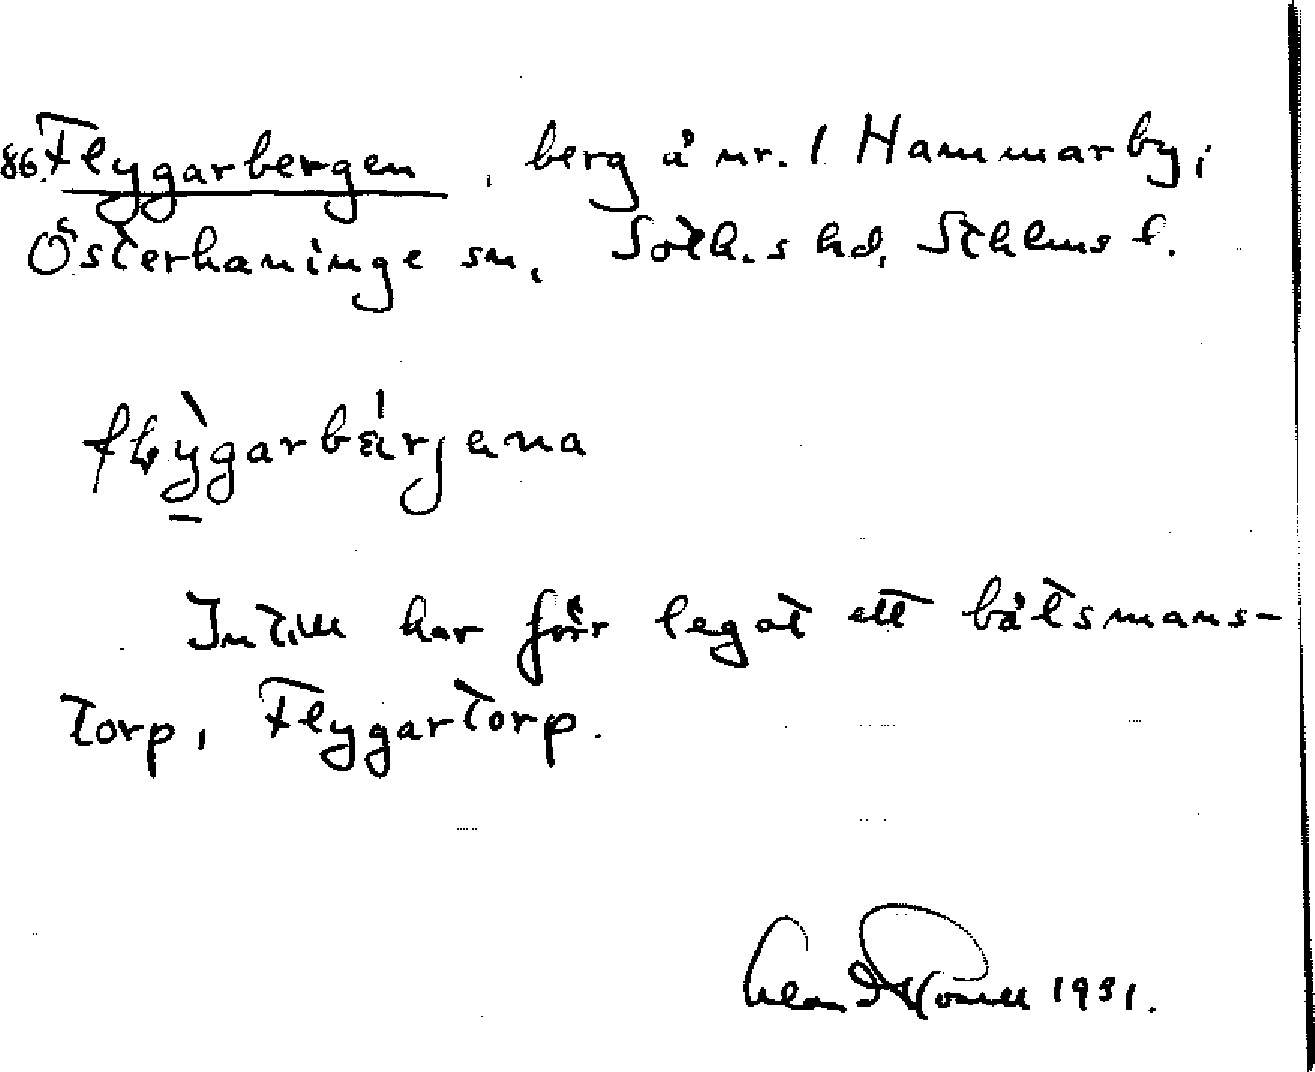 86. Flygarbergen, berg å nr. 1 Hammarby i
Österhaninge sn, Soth.s hd, Sthlms l.
flỳgarbärjena
Intill har förr legat ett båtsmans-
torp, Flygartorp.
1931.